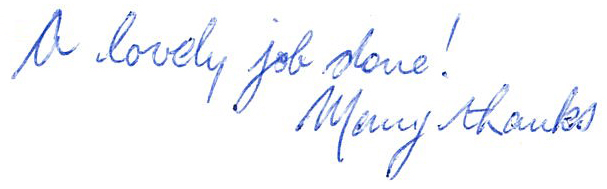 A lovely job done!
Many thanks